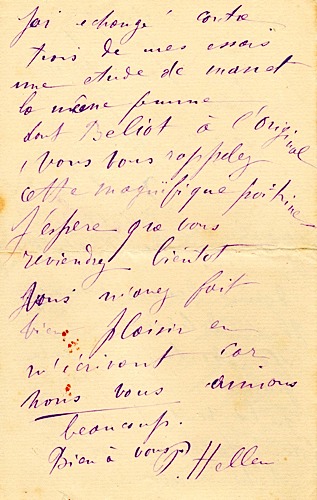 J'ai echangé contre
trois de mes essais
une etude de manet
la même femme
dont Beliot à l'Original
, vous vous rappelez
cette magnifique poitrine
J'espère que vous
reviendrez bientot
Vous m'avez fait
bien plaisir en
m'écrivant car
nous vous aimions
beaucoup.
Bien à vous P. Helleu